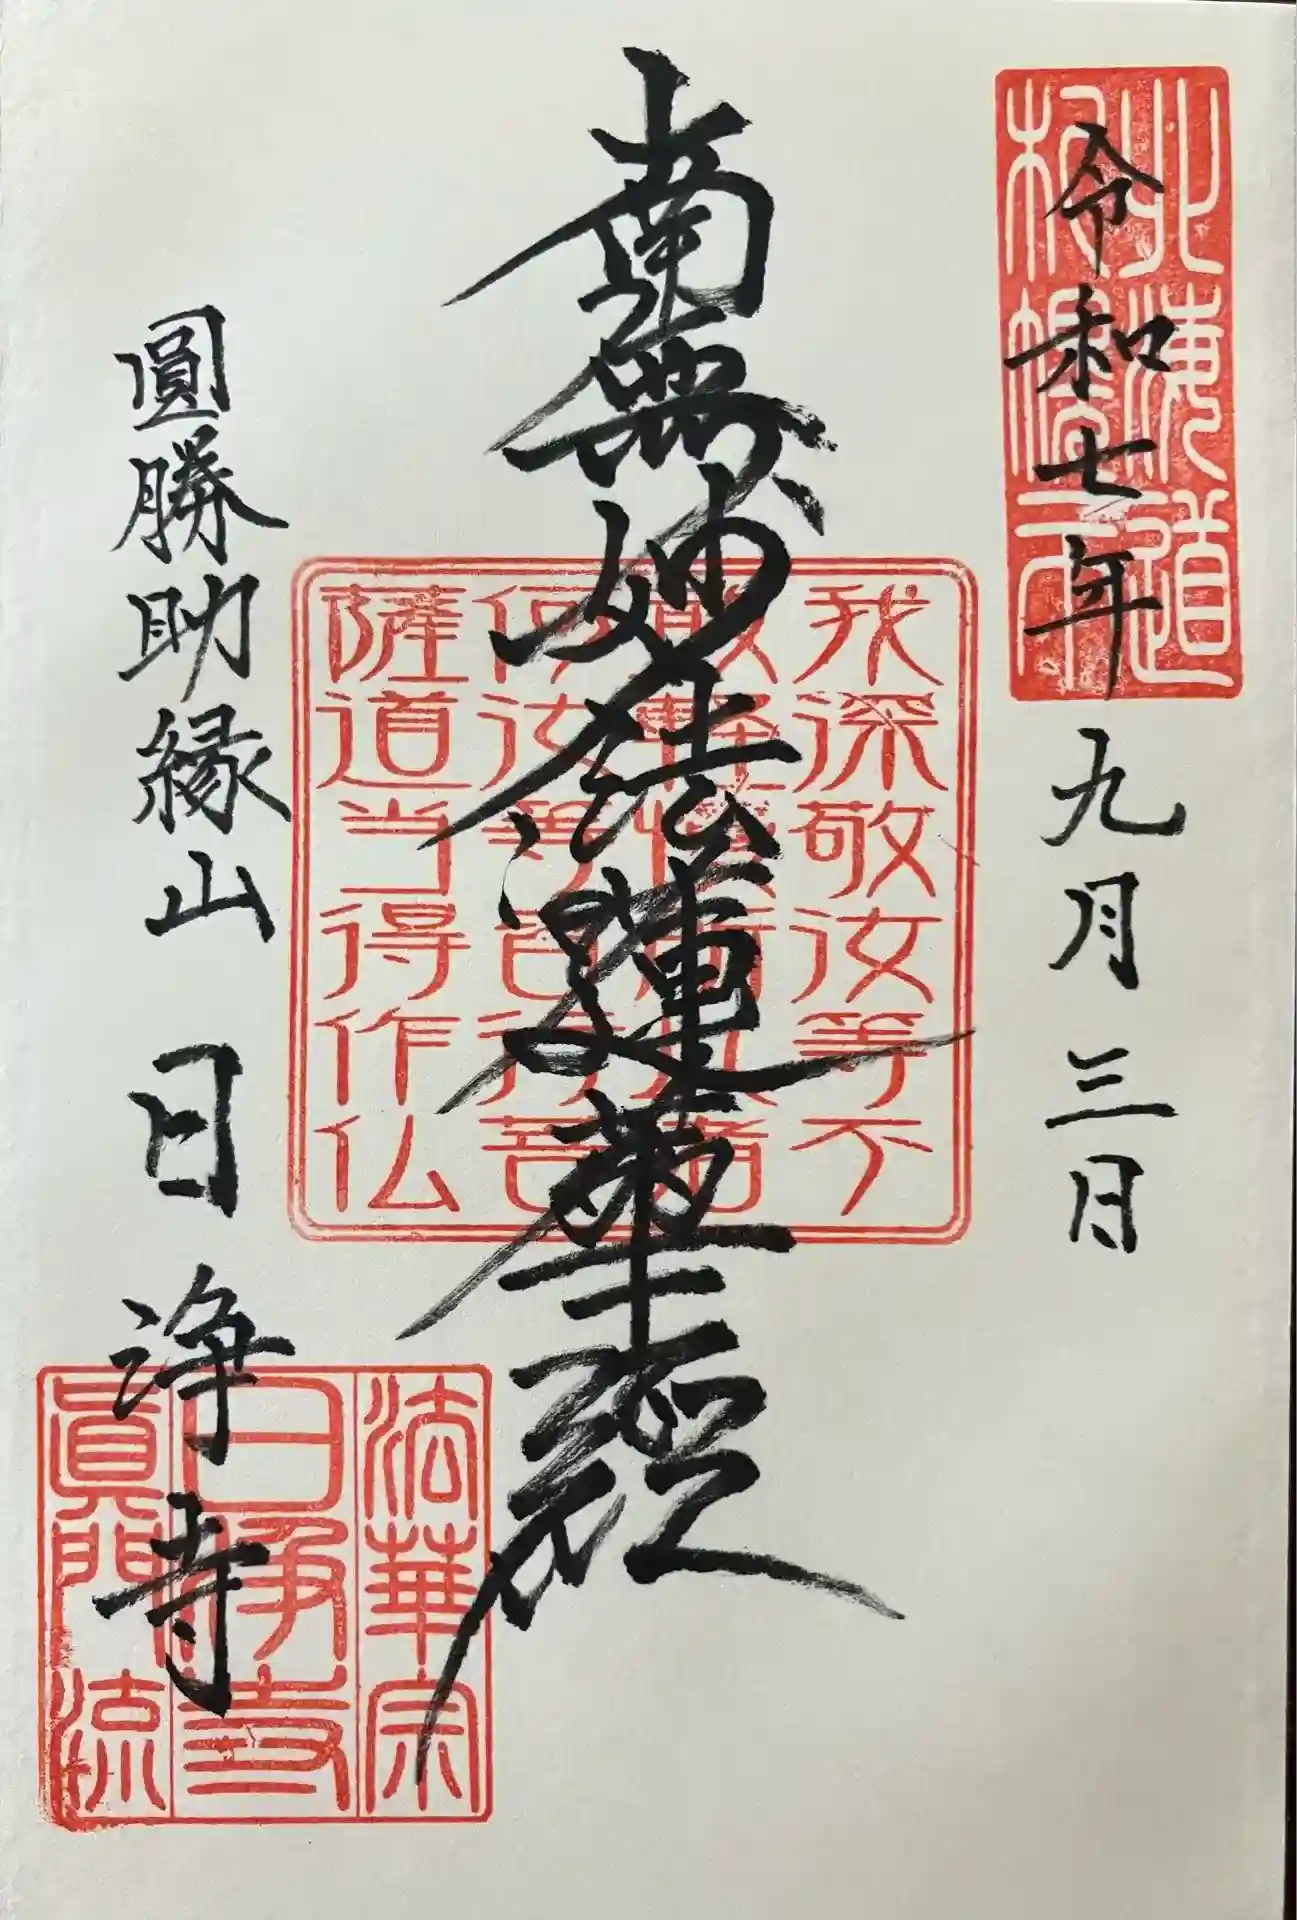 北海道
札幌市
令和七年九月三日
南無妙法蓮華経
我深敬汝等不
敢軽慢所以者
何汝等皆行菩
薩道当得作仏
圓勝助縁山 日浄寺
法華宗
日浄寺
眞門流